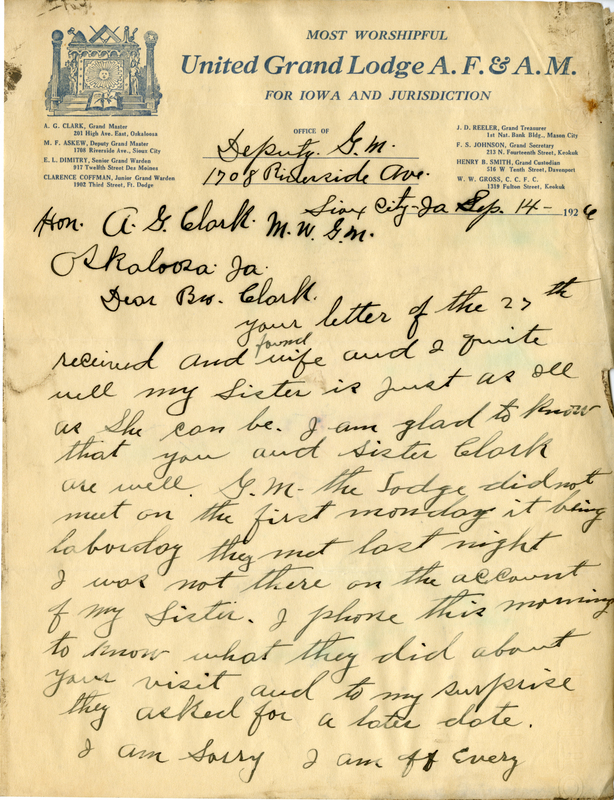 MOST WORSHIPFUL
United Grand Lodge A. F. & A. M.
FOR IOWA AND JURISDICTION
A. G. CLARK, Grand Master
201 High Ave. East, Oskaloosa
M. F. ASKEW, Deputy Grand Master
1708 Riverside Ave., Sioux City
E. L. DIMITRY, Senior Grand Warden
917 Twelfth Street Des Moines
CLARENCE COFFMAN, Junior Grand Warden
1902 Third Street, Ft. Dodge
J. D. REELER, Grand Treasurer
1st Nat. Bank Bldg., Mason City
F. S. JOHNSON, Grand Secretary
213 N. Fourteenth Street, Keokuk
HENRY B. SMITH, Grand Custodian
516 W Tenth Street, Davenport
W. W. GROSS, C. C. F. C.
1319 Fulton Street, Keokuk
OFFICE OF
Deputy. G. M.
1708 Riverside Ave.
Sioux City-Ia Sep. 14- 1926
Hon. A. G. Clark. M. W. G. M.
Oskaloosa. Ia.
Dear Bro. Clark.
your letter of the 27th
received and found wife and I quite
well my Sister is just as Ill
as She can be. I am glad to know
that you and Sister Clark
are well. G. M- the Lodge did not
meet on the first monday it being
laborday they met last night
I was not there on the account
of my Sister. I phone this morning
to know what they did about
your visit and to my surprise
they asked for a later date.
I am Sorry I am off Every